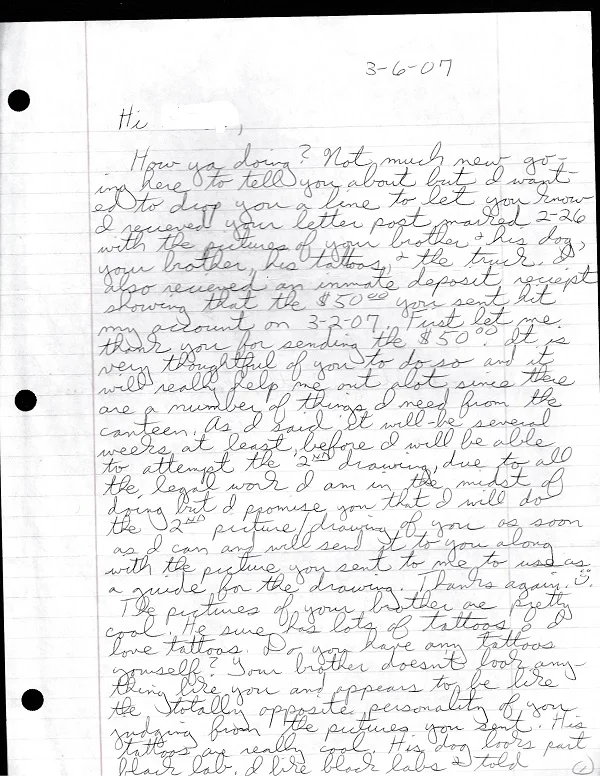 3-6-07
Hi ,
How ya doing? Not much new go-
ing here to tell you about but I want-
ed to drop you a line to let you know
I recieved your letter post marked 2-26
with the pictures of your brother & his dog,
your brother, his tattoos, & the truck. I
also recieved an inmate deposit reciept
showing that the $50.00 you sent hit
my account on 3-2-07. First let me
thank you for sending the $50.00 It is
very thoughtful of you to do so and it
will really help me out alot since there
are a number of things I need from the
canteen. As I said it will be several
weeks at least, before I will be able
to attempt the 2ND drawing, due to all
the legal work I am in the midst of
doing but I promise you that I will do
the 2ND picture/drawing of you as soon
as I can and will send it to you along
with the picture you sent to me to use as
a guide for the drawing. Thanks again. ☺.
The pictures of your brother are pretty
cool. He sure has lots of tattoos, & I
love tattoos. Do you have any tattoos
yourself? Your brother doesn't look any-
thing like you and appears to be like
the totally opposite personality of you
judging from the pictures you sent. His
tattoos are really cool. His dog looks part
black lab. I like black labs & told